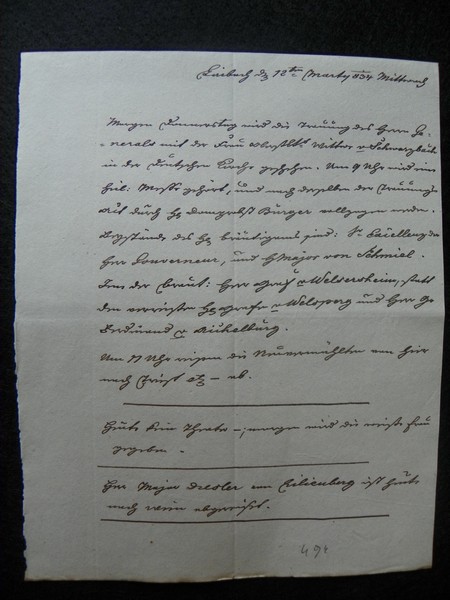 Laibach d. 12ten März 834 Mittwoch
Morgen Donnerstag wird die Trauung des Herrn Ge-
-nerals mit der Frau Obristlts Wittwe v Schwarzbach
in der Deutschen Kirche geschehen. Um 9 Uhr wird eine
heil: Messe gehört, und nach derselben der Trauungs-
Akt durch H Domprobst Burger vollzogen werden.
Beystände des H Bräutigams sind: Sr Excellenz der
Herr Gouverneur, und H Major von Schmiel.
Jene der Braut: Herr Graf v Welsersheim, statt
den verreisten H Grafen v Welsperg und Herr
Ferdinand v Aichelburg.
Um 11 Uhr reisen die Neuvermählten von hier
nach Triest etz – ab.
Heute kein Theater –; morgen wird die Frau
gegeben –
Herr Major Dresler von Cilienberg ist heute
nach Wien abgereist.
494